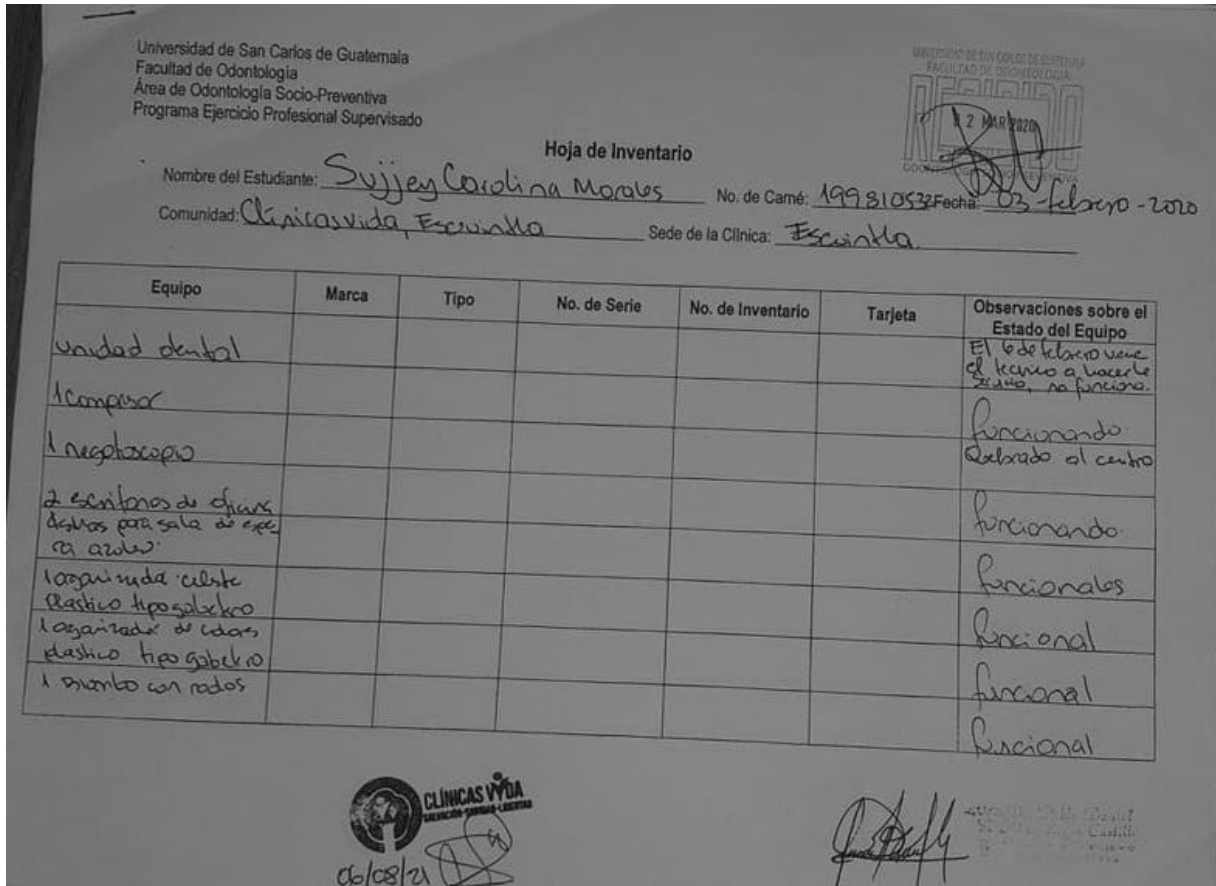 Universidad de San Carlos de Guatemala
Facultad de Odontología
Área de Odontología Socio-Preventiva
Programa Ejercicio Profesional Supervisado
UNIVERSIDAD DE SAN CARLOS DE GUATEMALA
FACULTAD DE ODONTOLOGIA
RECIBIDO
2 MAR 2020
Hoja de Inventario
Nombre del Estudiante: Sujjey Carolina Morales No. de Carné: 199810532 Fecha: 03-febrero-2020
Comunidad: Clínicas Vida, Escuintla Sede de la Clínica: Escuintla.
Equipo Marca Tipo No. de Serie No. de Inventario Tarjeta Observaciones sobre el
Estado del Equipo
unidad dental
El 6 de febrero viene
el tecnico a hacerle
no funciona.
1 compresor
funcionando
1 negatoscopio
Quebrado al centro
2 escritorios de oficina
funcionando.
para sala de espe
ra azules.
funcionales
1 organizador celeste
plastico tipo gabetero
funcional
1 organizador de colores
plastico tipo gabetero
funcional
1 Biombo con rodos
funcional
CLÍNICAS VIDA
SALVACIÓN-SANIDAD-LIBERTAD
06/08/21